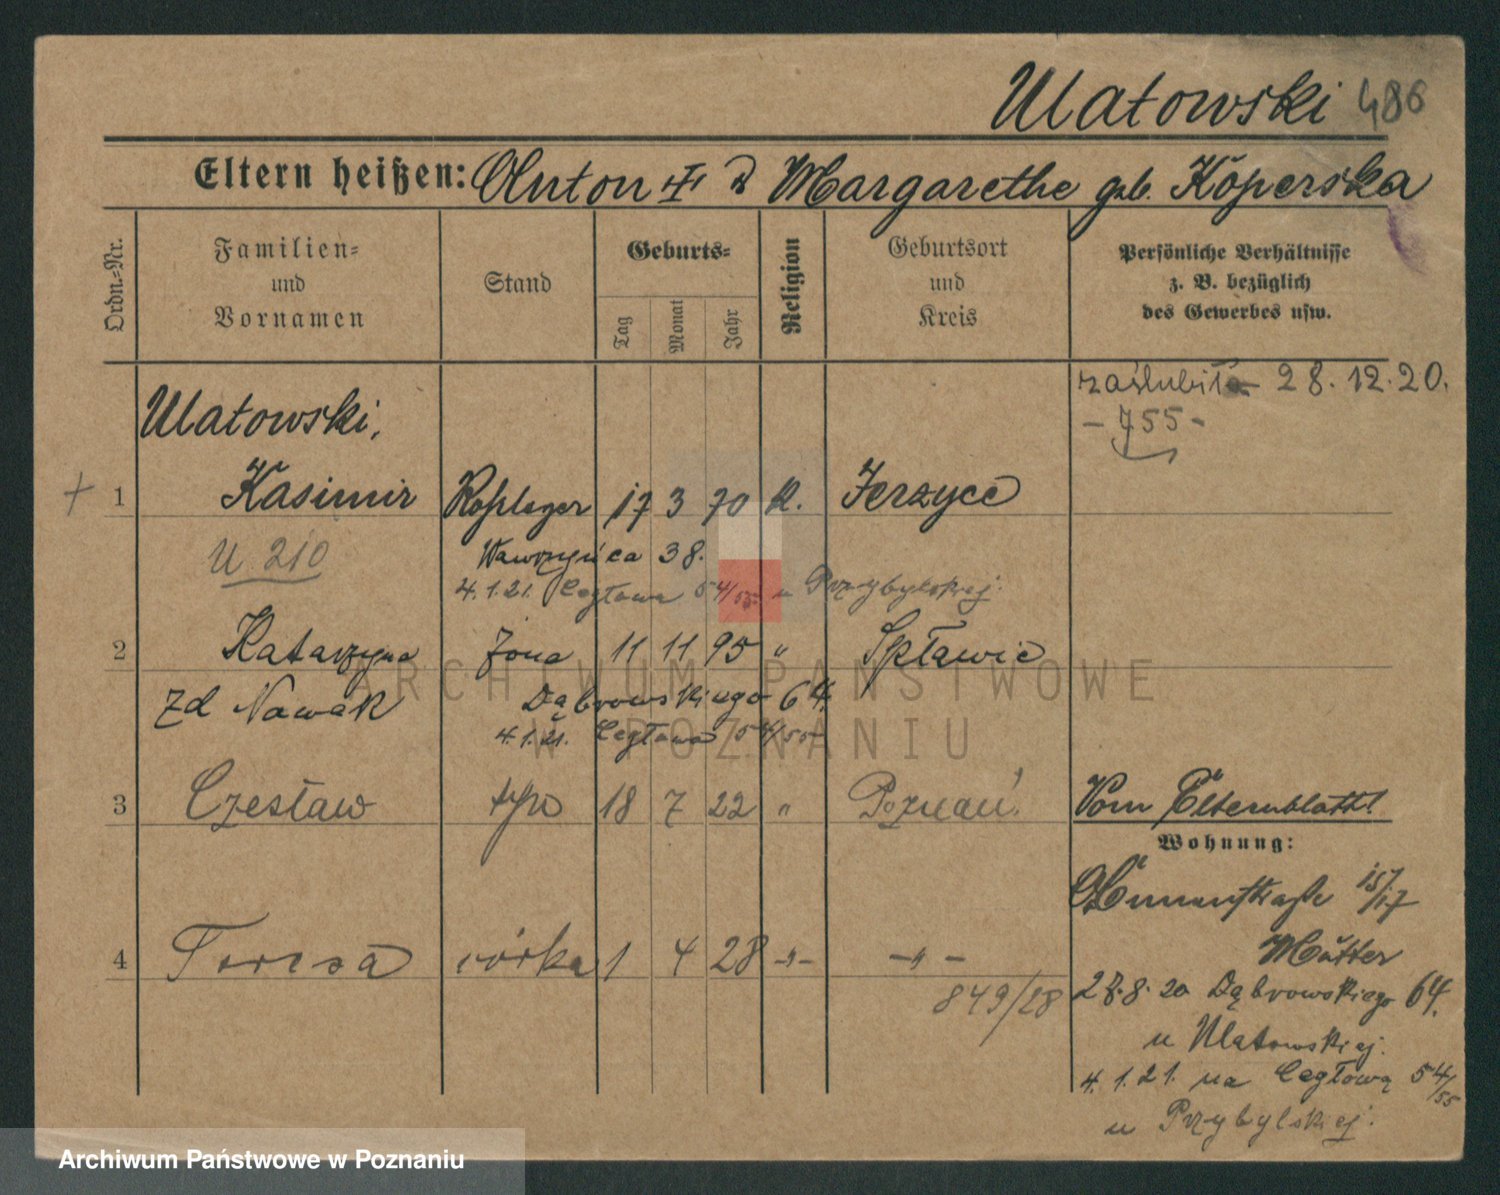 Ulatowski 486
Eltern heißen: Anton † & Margarethe geb. Koperska
Ordn.-Nr.
Familien- und Vornamen
Stand
Geburts-
Tag
Monat
Jahr
Religion
Geburtsort und Kreis
Persönliche Verhältnisse z. B. bezüglich des Gewerbes usw.
zaślubił 28.12.20.
- 755 -
Ulatowski,
+ 1 Kasimir 17 3 70 K. Jerzyce
U 210 Wawrzyńca 38.
4.1.21. Cegłowa 54/55 u Przybylskiej.
2 Katarzyna żona 11 11 95 " Spławie
zd Nowak Dąbrowskiego 64.
4.1.21. Cegłowa 54/55
3 Czesław syn 18 7 22 " Poznań. Vom Elternblatt!
Wohnung:
15/17
Mutter
4 Teresa córka 1 4 28 -"- -"-
849/28 27.8.20 Dąbrowskiego 64.
u Ulatowskiej.
4.1.21. na Cegłową 54/55
u Przybylskiej.
ARCHIWUM PAŃSTWOWE
W POZNANIU
Archiwum Państwowe w Poznaniu